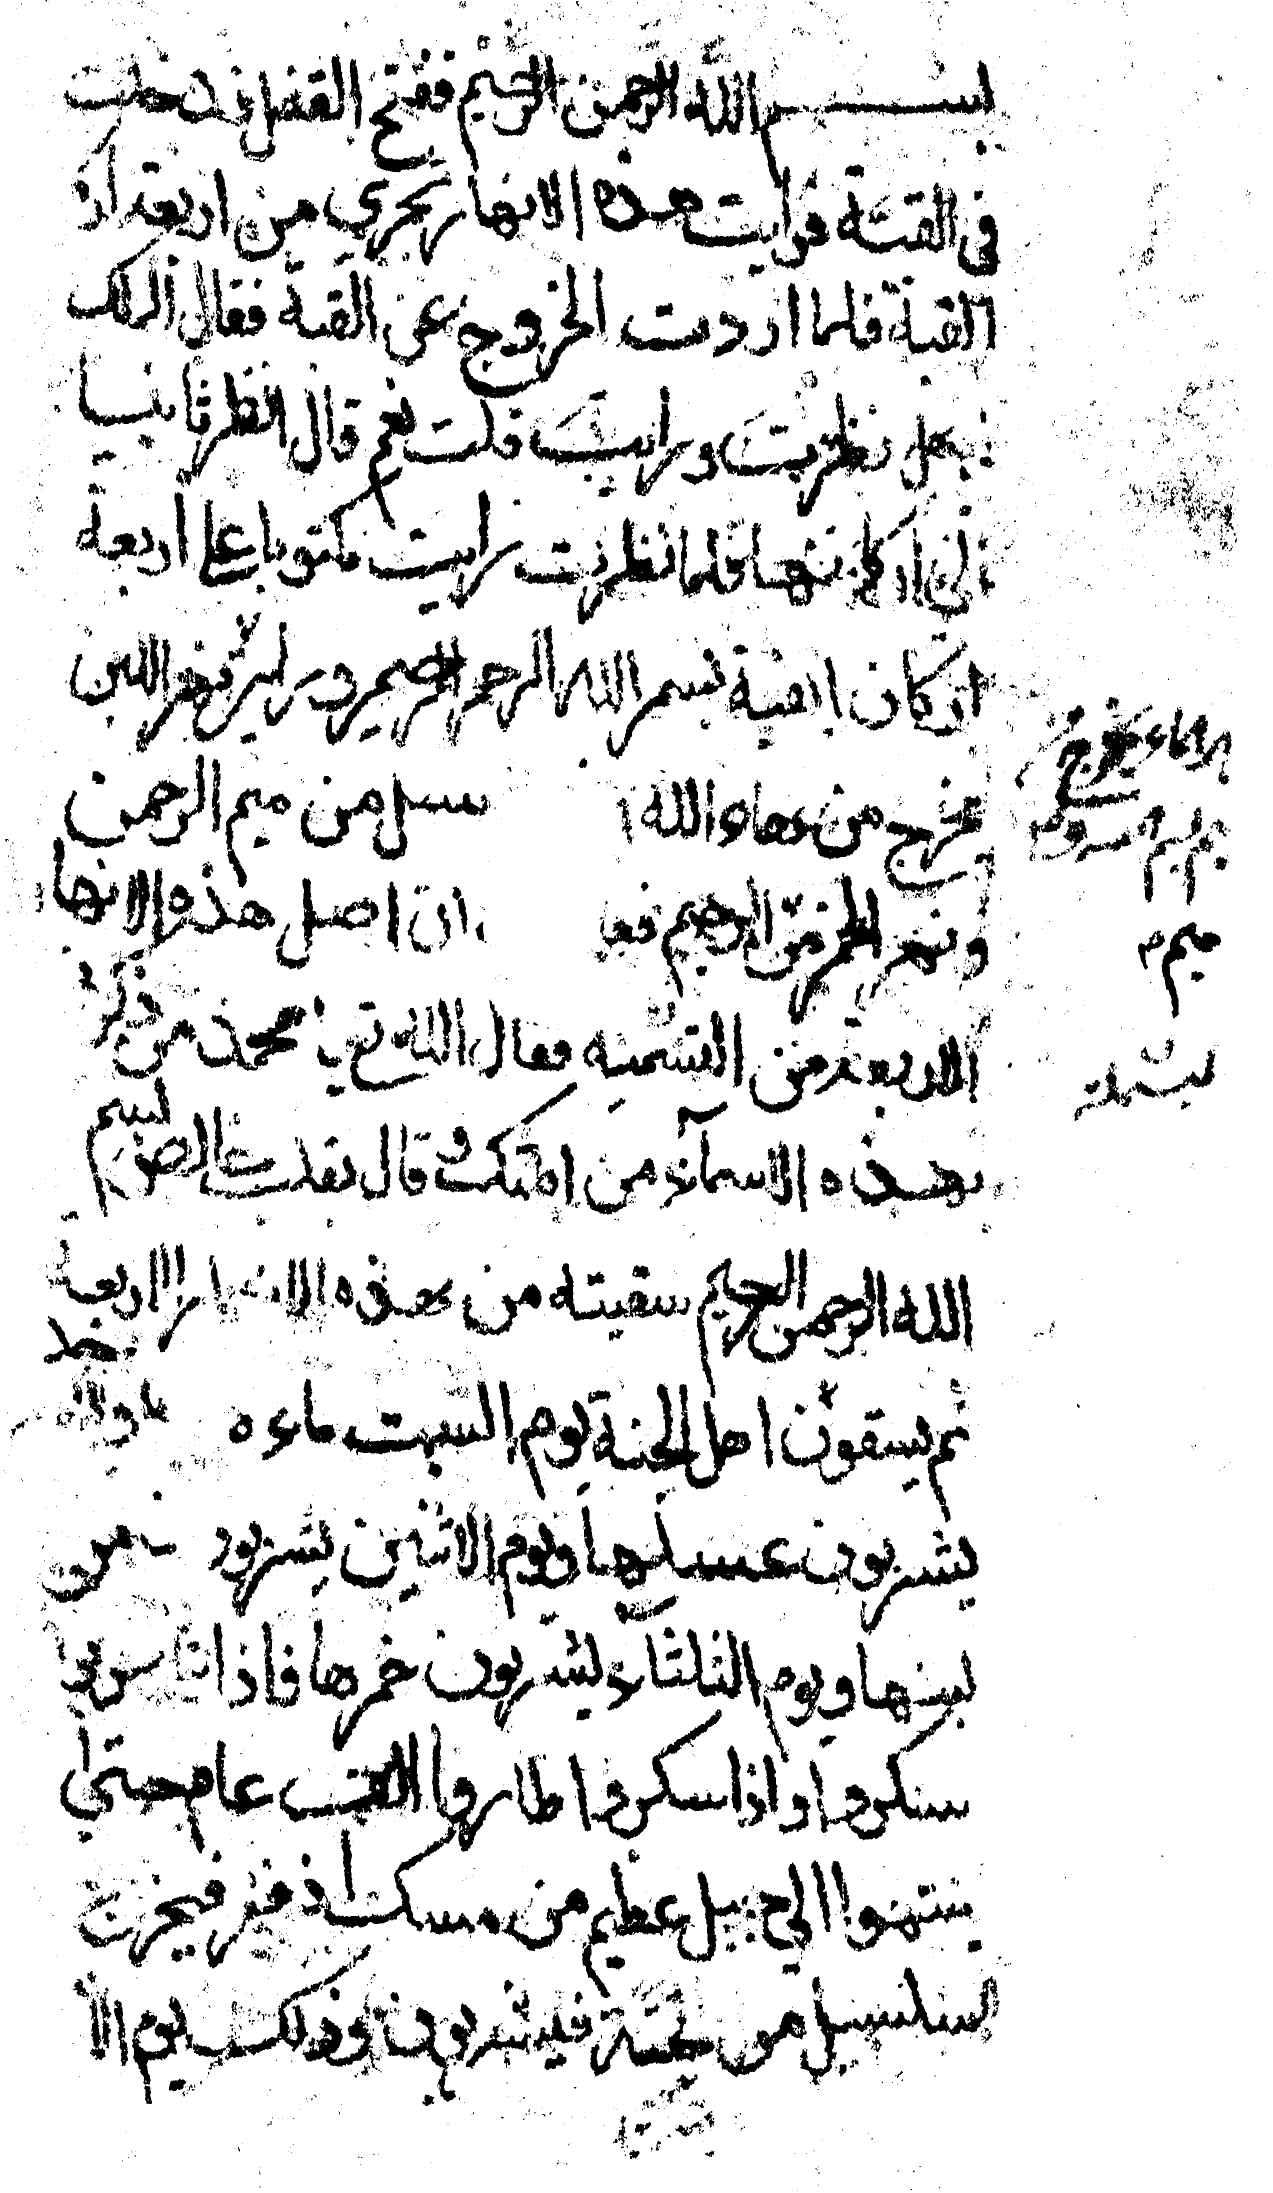 بسم الله الرحمن الرحيم ففتح القفل فدخلت
في القبة فرايت هذه الانهار تجري من اربعة ار
القبة فلما اردت الخروج عن القبة فقال الملك
هل نظرت ورايت قلت نعم قال انظر ثانيا
الى اركانها فلما نظرت رايت مكتوبا على اربعة
اركان القبة بسم الله الرحمن الرحيم ونهر اللبن
يخرج من هاء الله ا سل من ميم الرحمن
ونهر الخمر من الرحيم فقا ان اصل هذه الانها
الاربعة من التسمية فقال الله تع يا محمد من ذكرني
بهذه الاسماء من امتك وقال بقلب خالص بسم
الله الرحمن الرحيم سقيته من هذه الانهار الاربعة
ثم يسقون اهل الجنة يوم السبت ماءه
يشربون عسلها ويوم الاثنين يشربون من
لبنها ويوم الثلثاء يشربون خمرها فاذا شربوا
سكروا واذا سكروا طاروا الف عام حتى
ينتهوا الى جبل عظيم من مسك اذفر فيخرج
السلسبيل من تحته فيشربون وذلك يوم الا
يخرج
ميم
بسملة